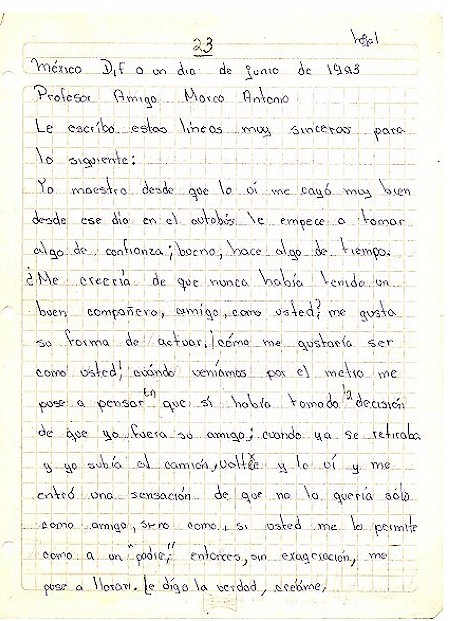 23
México D,f a un día de junio de 1993
Profesor Amigo Marco Antonio
Le escribo estas líneas muy sinceras para
lo siguiente:
Yo maestro desde que lo ví me cayó muy bien
desde ese día en el autobús le empece a tomar
algo de confianza; bueno, hace algo de tiempo.
¿Me creería de que nunca había tenido un
buen compañero, amigo, como usted? me gusta
su forma de actuar, ¡cómo me gustaría ser
como usted! cuándo veníamos por el metro me
puse a pensar en que si había tomado la decisión
de que yo fuera su amigo; cuando ya se retiraba
y yo subía al camión, volteé y lo ví y me
entró una sensación de que no lo quería sólo
como amigo, sino como, si usted me lo permite
como a un "padre," entonces, sin exageración, me
puse a llorar. Le digo la verdad, créame,